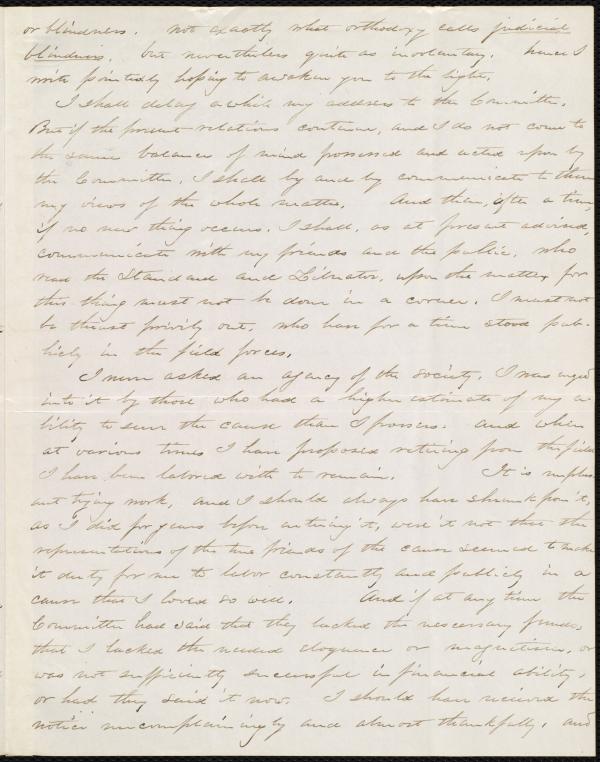 or blindness. not exactly what orthodoxy calls judicial
blindness, but nevertheless quite as involuntary. hence I
write pointedly hoping to awaken you to the light.
I shall delay awhile my address to the Committee.
But if the present relations continue, and I do not come to
the same balance of mind possessed and acted upon by
the Committee, I shall by and by communicate to them
my views of the whole matter. And then, after a time,
if no new thing occurs, I shall, as at present advised,
communicate with my friends and the public, who
read the Standard and Liberator, upon the matter, for
this thing must not be done in a corner. I must not
be thrust privily out, who have for a time stood pub-
licly in the field forces.
I never asked an agency of the society. I was urged
into it by those who had a higher estimate of my a-
bility to serve the cause than I possess. and when
at various times I have proposed retiring from the field
I have been labored with to remain. It is unpleas
ant trying work, and I should always have shrunk from it,
as I did for years before entering it, were it not that the
representations of the true friends of the cause seemed to make
it duty for me to labor constantly and publicly in a
cause that I loved so well. And if at any time the
Committee had said that they lacked the necessary funds,
that I lacked the needed eloquence or magnetism, or
was not sufficiently successful in financial ability,
or had they said it now. I should have received the
notice uncomplainingly and almost thankfully, and